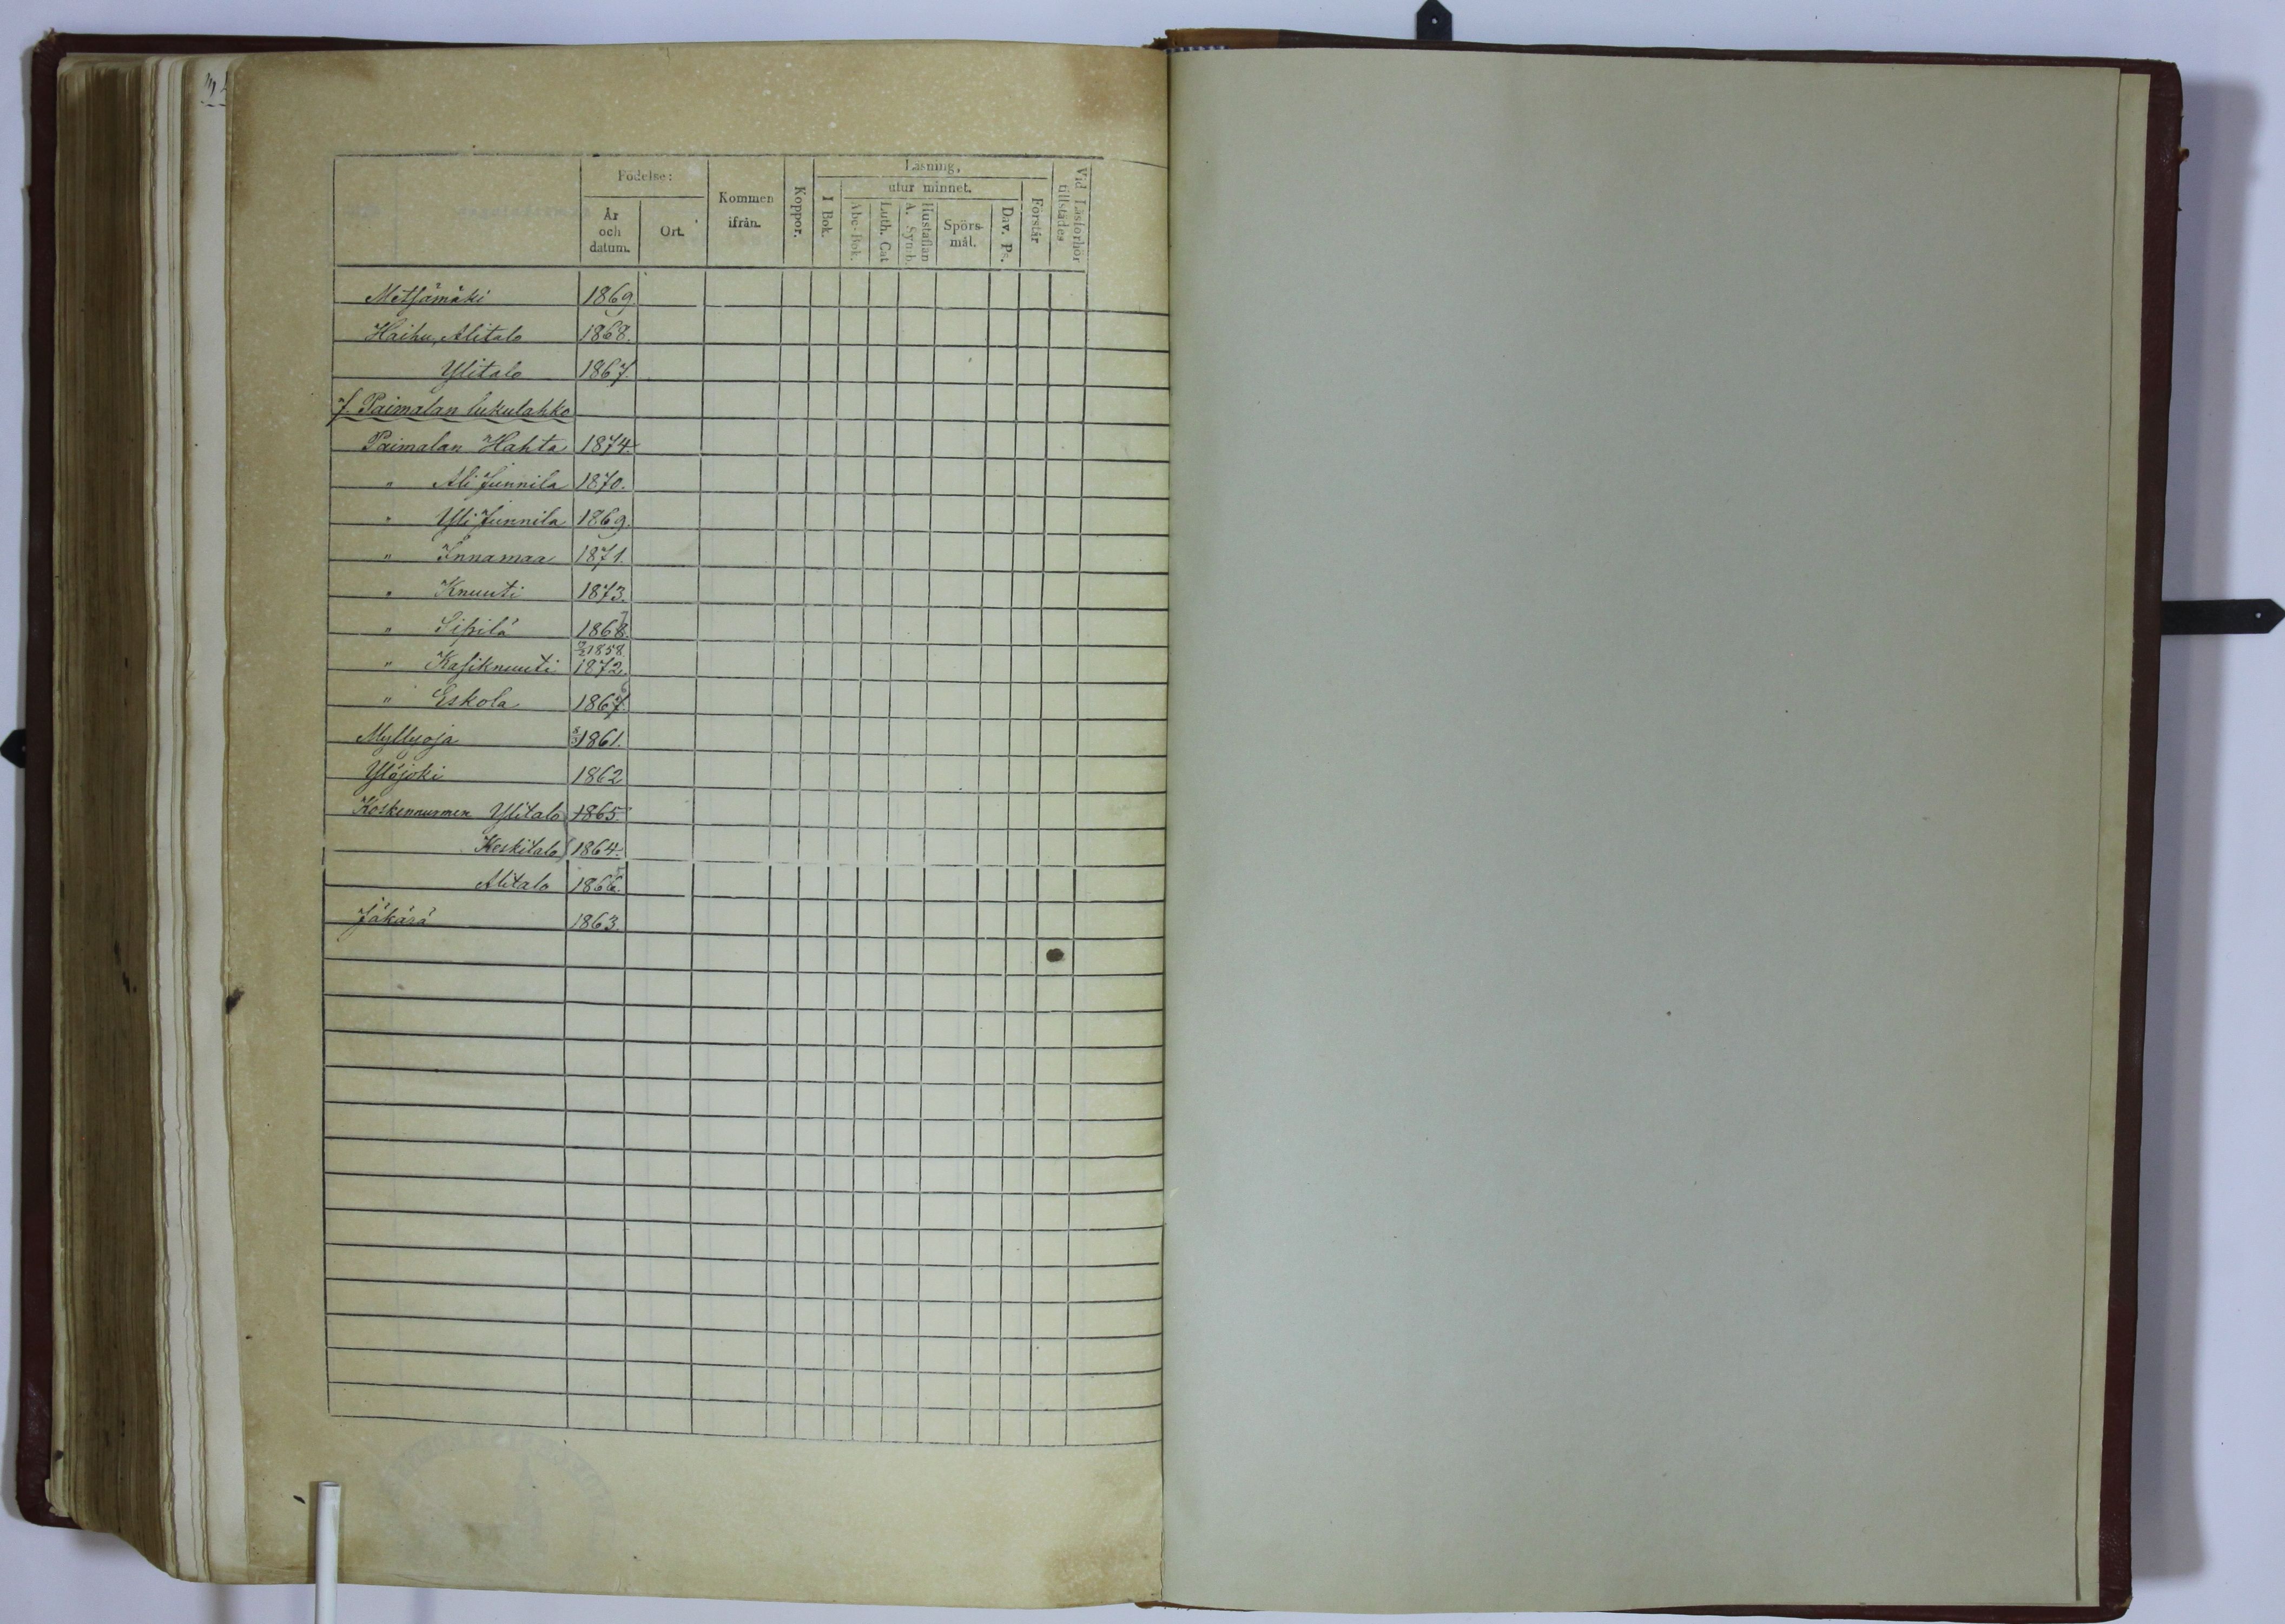 Födelse:
År och datum.
Ort.
Kommen ifrån.
Koppor.
Läsning,
I Bok.
utur minnet.
Abc-Bok.
Luth. Cat.
Hustaflan A. Symb.
Spörs-mål.
Dav. Ps.
Förstår
Vid Läsförhör tillstädes
Metsämäki 1869.
Haihu, Alitalo 1868.
Ylitalo 1867.
7. Paimalan lukulahko
Paimalan Hahta 1874.
" Ali Junnila 1870.
" Yli Junnila 1869.
" Innamaa 1871.
" Knuuti 1873.
" Sipilä 1868.
" Kasiknuuti 1858 1872.
" Eskola 1867.
Myllyoja 1861.
Yläjoki 1862
Koskennurmen Ylitalo 1865.
Keskitalo 1864.
Alitalo 1866.
Jäkärä 1863.